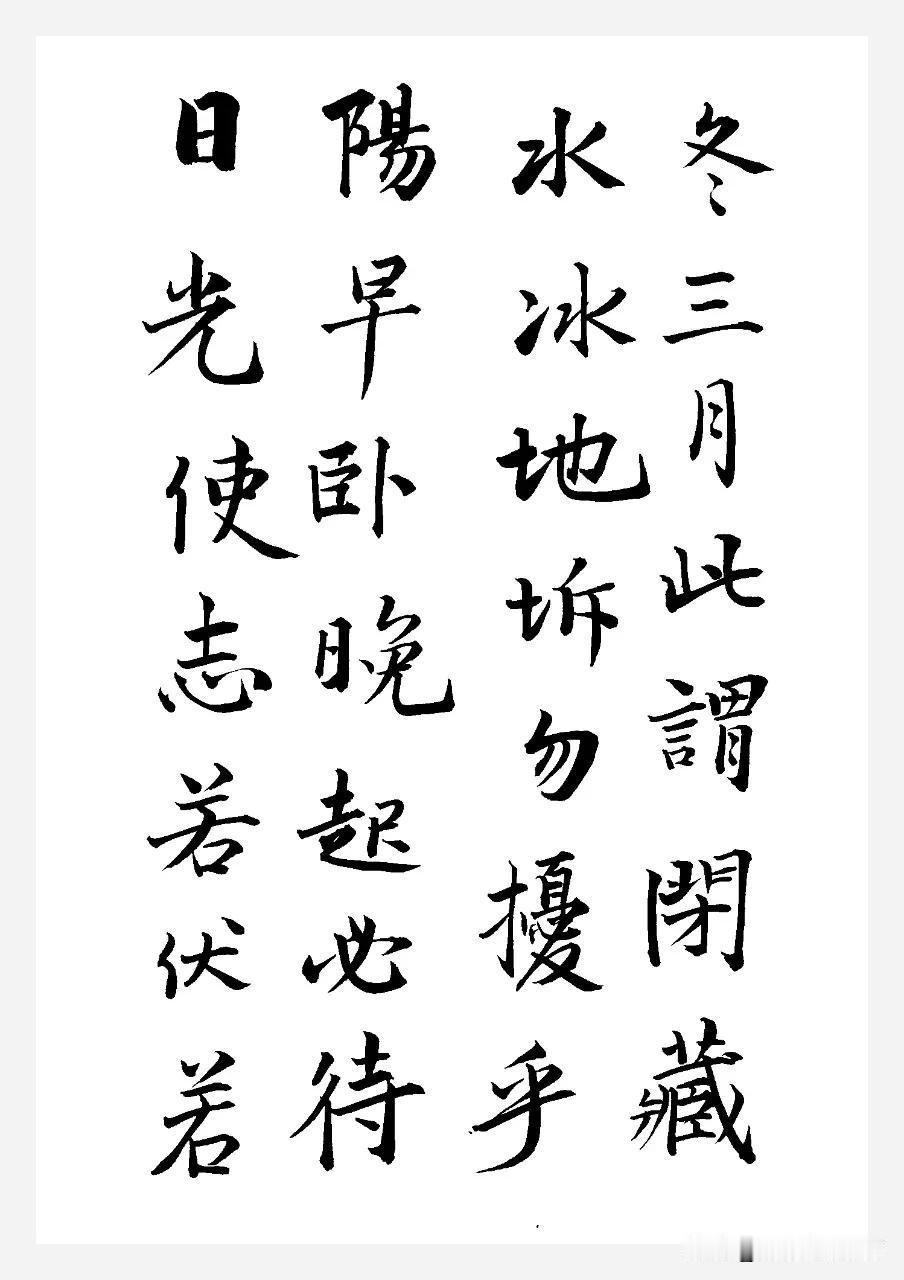 冬三月此謂閉藏
水冰地坼勿擾乎
陽早卧晚起必待
日光使志若伏若